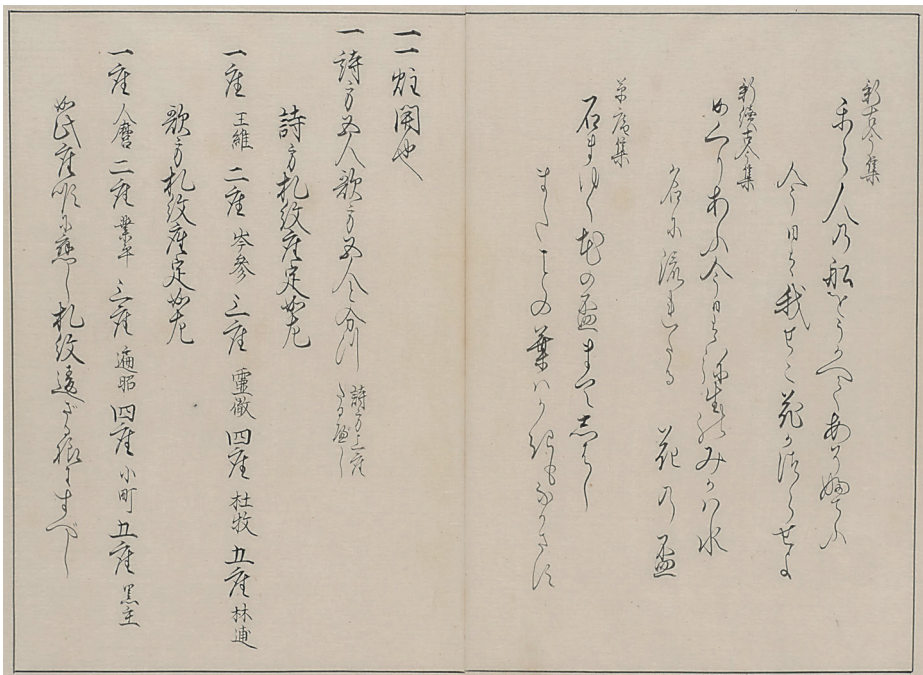 新古今集
から人の船をうかへてあそふてふ
今日そ我せこ花かつらせよ
新続古今集
めくりあふ今日は弥生のみかは水
名に流れたる花の盃
草庵集
石まゆく花の盃まてしはし
またことの葉は
一一炷開也
一詩方五人歌方五人と分つ 詩方上座
たるべし
詩方札紋座定如左
一座 王維 二座 岑参 三座 霊徹 四座 杜牧 五座 林逋
歌方札紋座定如左
一座 人麿 二座 業平 三座 遍昭 四座 小町 五座 黒主
如此座順に応し札紋違ざる様にすべし